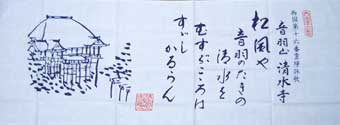 西国第十六番霊場詠歌
音羽山 清水寺
松風や
音羽のたきの
清水を
むすぶこころは
すゞしかるらん